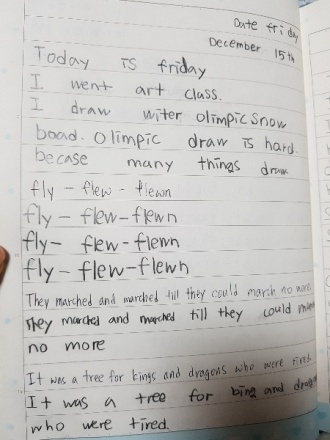 Date friday
December 15th
Today is friday
I went art class.
I draw witer olimpic snow
boad. Olimpic draw is hard.
becase many things draw
fly - flew - flewn
fly - flew - flewn
fly - flew - flewn
fly - flew - flewn
They marched and marched till they could march no more
They marched and marched till they could
no more
It was a tree for kings and dragons who were tired.
It was a tree for bing and
who were tired.